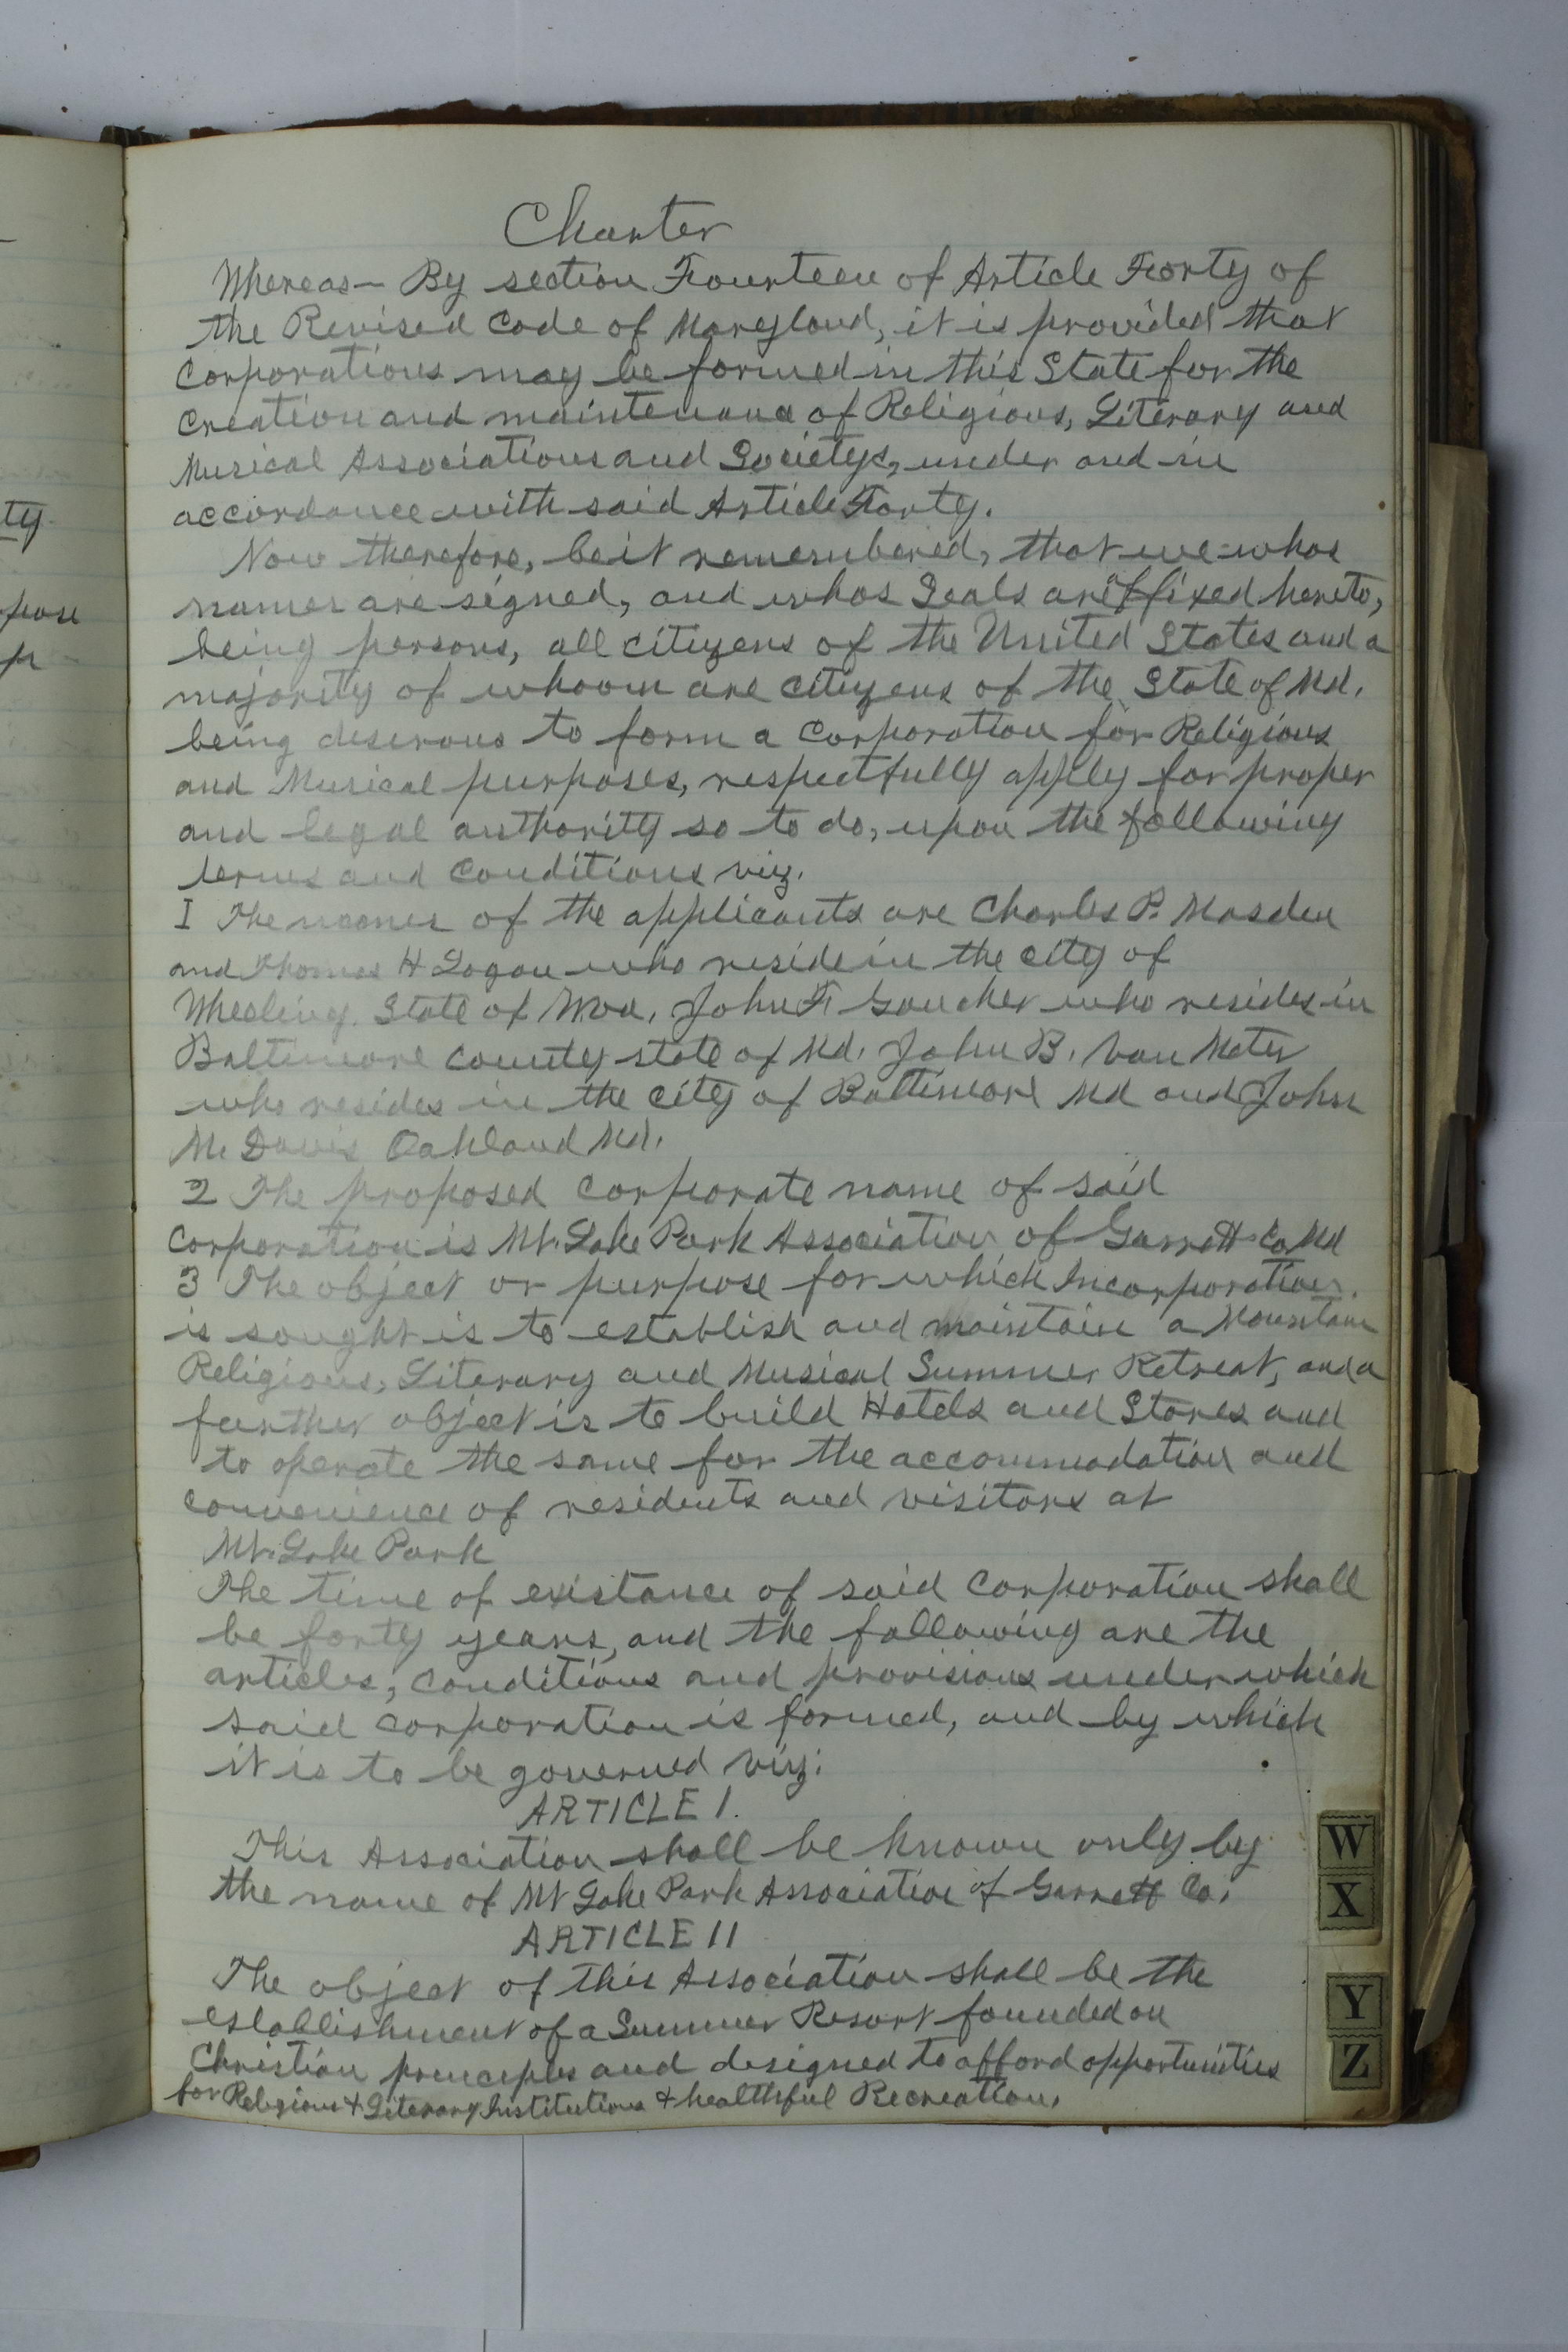 Charter
Whereas - By section Fourteen of Article Forty of
the Revised Code of Maryland, it is provided that
Corporations may be formed in this State for the
Creation and maintenance of Religious, Literary and
Musical Associations and Societys, under and in
accordance with said Article Forty.
Now therefore, be it remembered, that we whos
names are signed, and whos Seals are affixed hereto,
being persons, all citizens of the United States and a
majority of whoom are citizens of the State of Md.
being deserous to form a Corporation for Religious
and Musical purposes, respectfully apply for proper
and legal authority so to do, upon the following
terms and conditions viz.
I The names of the applicants are Charles P. Masden
and Thomas H Logan who reside in the city of
Wheeling. State of W.Va. John F. Goucher who resides in
Baltimore County state of Md. John B. Van Meter
who resides in the city of Baltimore Md and John
M. Davis Oakland Md.
2 The proposed corporate name of said
Corporation is Mt. Lake Park Association of Garrett Co Md
3 The object or purpose for which Incorporation
is sought is to establish and maintain a Mountain
Religious, Literary and Musical Summer Retreat, and a
further object is to build Hotels and Stores and
to operate the same for the accommodation and
convenience of residents and visitors at
Mt. Lake Park
The time of existance of said Corporation shall
be forty years, and the following are the
articles, conditions and provisions under which
said corporation is formed, and by which
it is to be governed viz:
ARTICLE I.
This Association shall be known only by
the name of Mt Lake Park Association of Garrett Co.
ARTICLE II
The object of this Association shall be the
establishment of a Summer Resort founded on
Christian princeples and designed to afford opportunities
for Religious + Literary Institutions + healthful Recreation.
W
X
Y
Z
ty.
pose